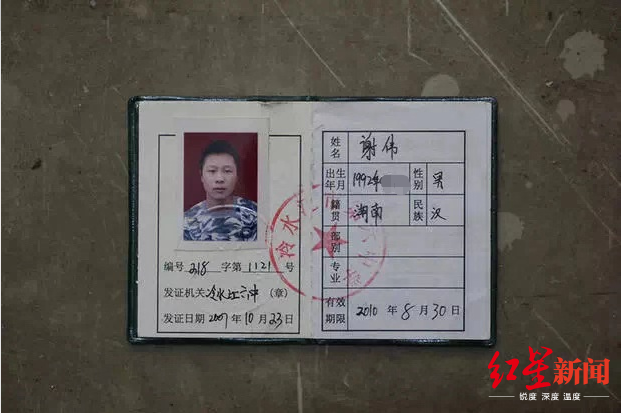 编号 218 字第 1121 号
发证机关 冷水江六中 (章)
发证日期 2007 年 10 月 23 日
姓名 谢伟
出生年月 1992年 性别 男
籍贯 湖南 民族 汉
部别
专业
有效期限 2010 年 8 月 30 日
冷水江
红星新闻
锐度 深度 温度